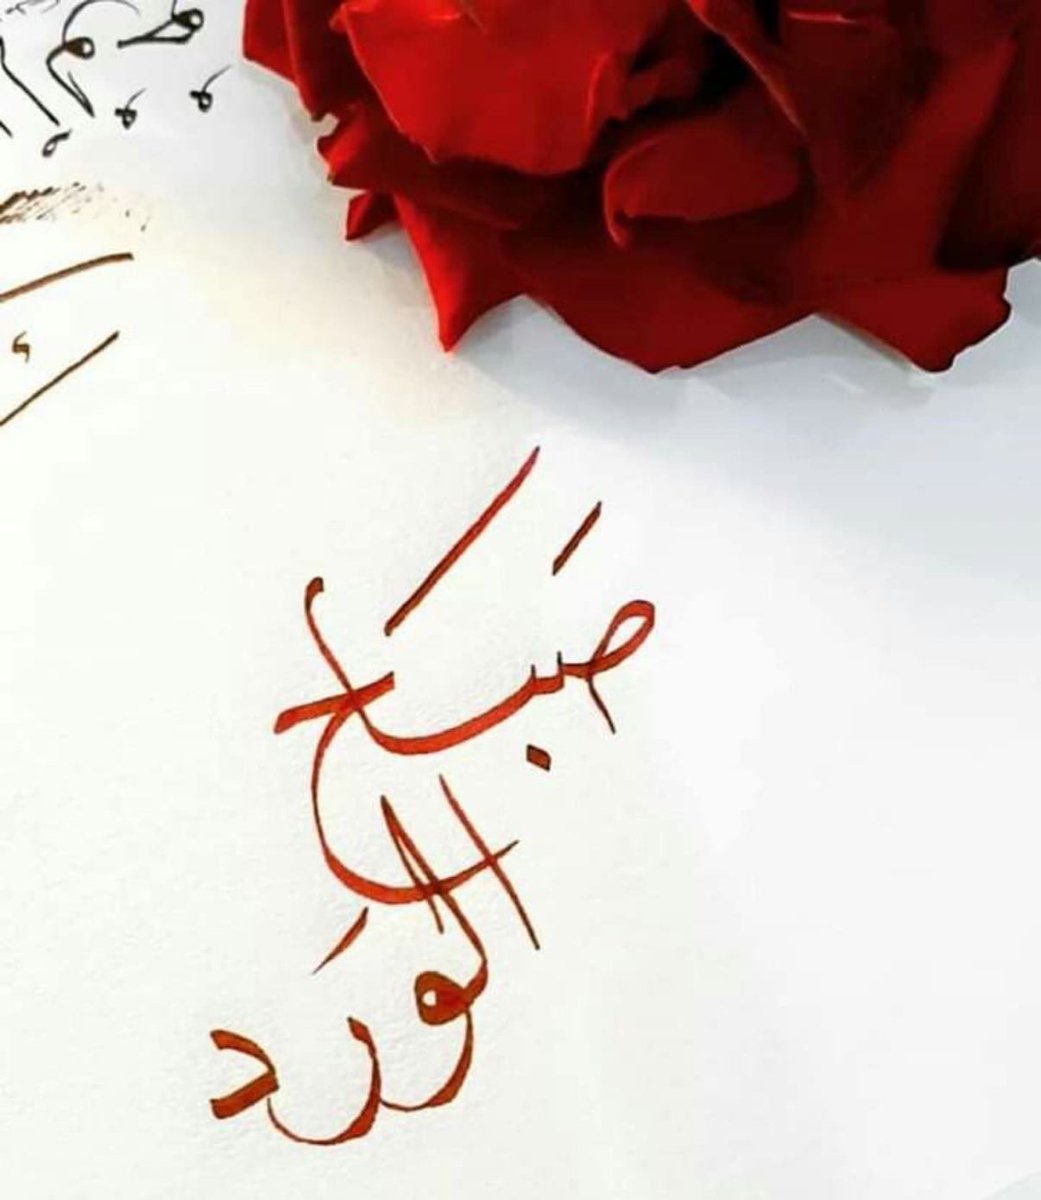 صباح
الورد